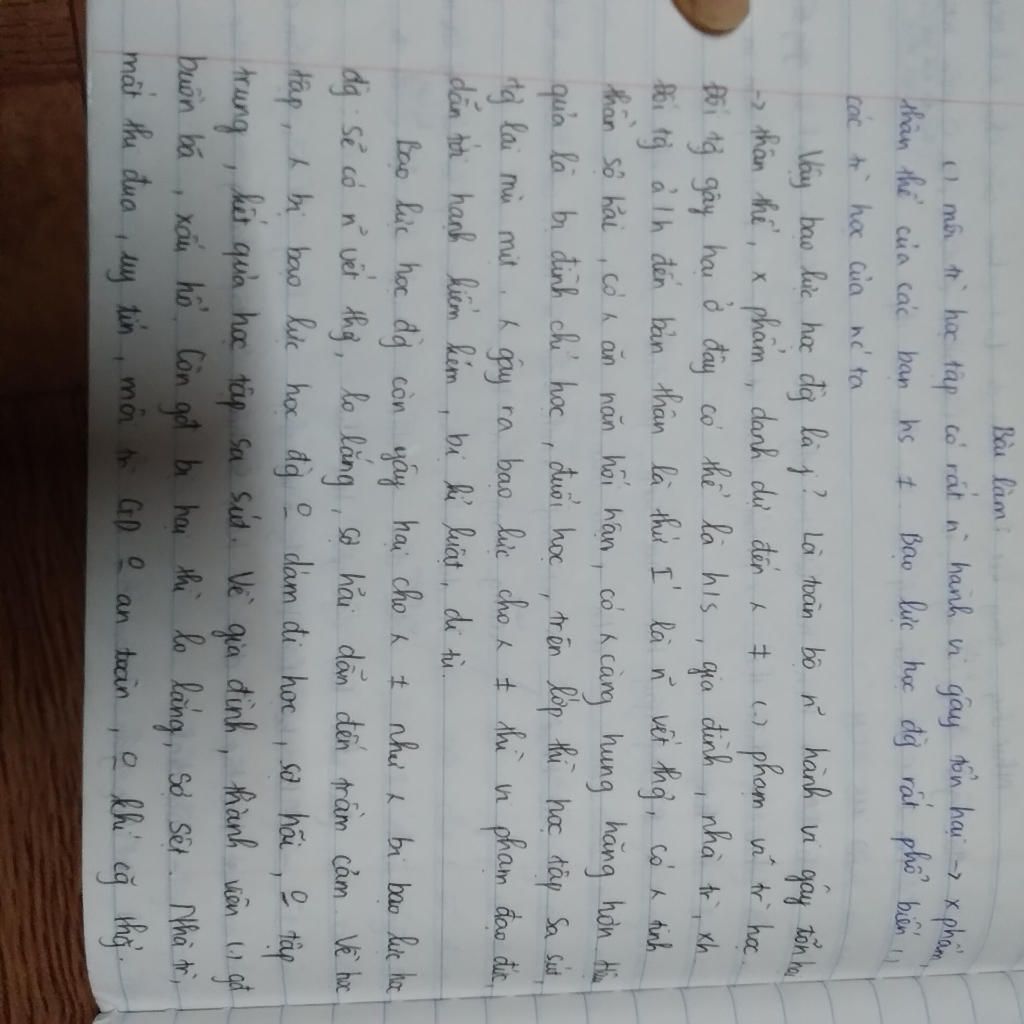 Bài làm:
(.) môi tr` học tập có rất n~ hành vi gây tổn hại -> x phẩm,
thân thể của các bạn hs ≠. Bạo lực học đg` rất phổ biến (.)
các tr` học của nc' ta
Vậy bạo lực học đg` là j? Là toàn bộ n~ hành vi gây tổn hại
-> thân thể, x phẩm, danh dự đến λ ≠ (.) phạm vi tr` học.
Đối tg gây hại ở đây có thể là h/s, gia đình, nhà tr`, xh
Đối tg ả/h đến bản thân là thứ 1 là n~ vết thg, có λ tinh
thần sợ hãi, có λ ăn năn hối hận, có λ càng hung hăng hơn
quả là bị đình chỉ học, đuổi học, trên lớp thì học tập sa sút,
tg lai mù mịt. λ gây ra bạo lực cho λ ≠ thì vi phạm đạo đức,
dẫn tới hạnh kiểm kém, bị kỉ luật, đi tù.
Bạo lực học đg` còn gây hại cho λ ≠ như λ bị bạo lực học
đg` sẽ có n~ vết thg, lo lắng, sợ hãi dẫn đến trầm cảm. Về học
tập, λ bị bạo lực học đg` o dám đi học, sợ hãi, o tập
trung, kết quả học tập sa sút. Về gia đình, thành viên (.) gđ
buồn bã, xấu hổ. Còn gđ bị hại thì lo lắng, sợ sệt. Nhà tr`,
mất thi đua, uy tín, môi tr` GD o an toàn, o khí cg~ thg~.